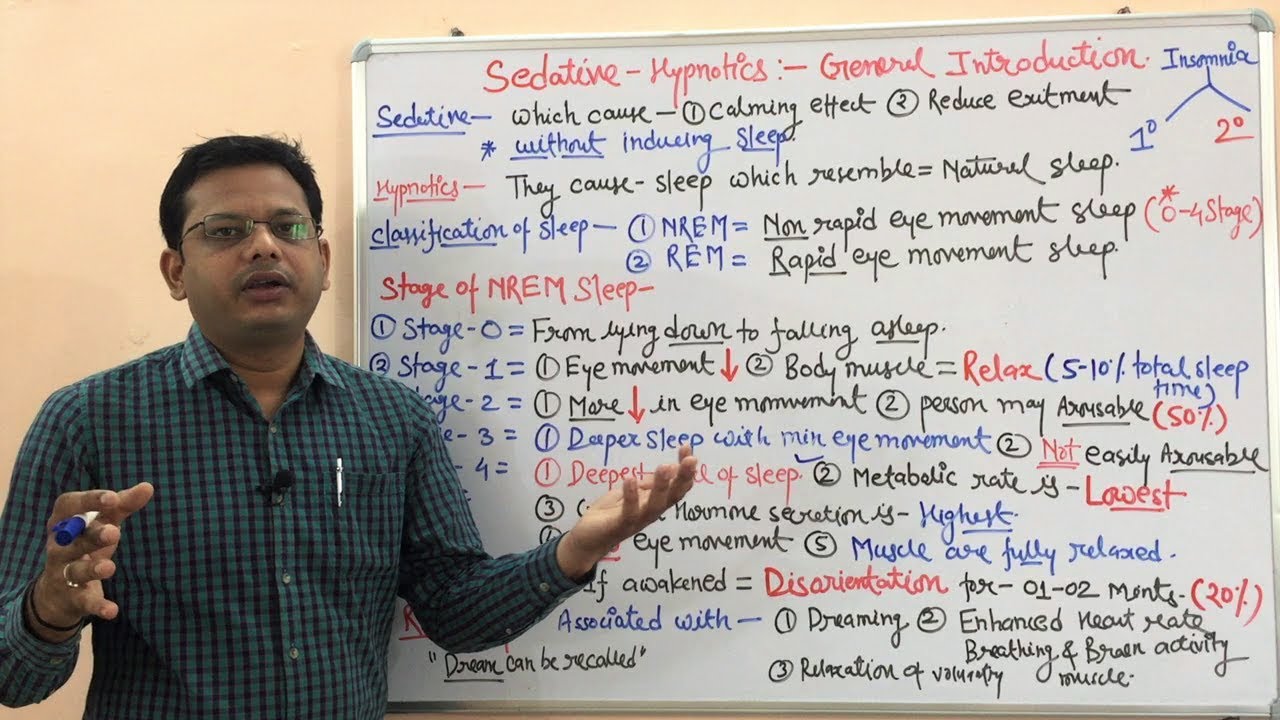 Sedative-Hypnotics:- General Introduction.
Insomnia
1° 2°
Sedative- which cause- ① Calming effect ② Reduce exitment
* without inducing sleep.
Hypnotics- They cause-sleep which resemble= Natural sleep.
classification of sleep- ① NREM= Non rapid eye movement sleep (*0-4 Stage)
② REM= Rapid eye movement sleep.
Stage of NREM Sleep-
① Stage-0 = From lying down to falling asleep.
② Stage-1 = ① Eye movement ↓ ② Body muscle = Relax (5-10% total sleep time)
2 = ① More ↓ in eye momvement ② person may Arousable (50%)
3 = ① Deeper sleep with min eye movement ② Not easily Arousable
4 = ① Deepest of sleep. ② Metabolic rate is - Lowest
③ Hormone secretion is- Highest.
eye movement ⑤ Muscle are fully relaxed.
If awakened = Disorientation for- 01-02 Monts. (20%)
Associated with- ① Dreaming ② Enhanced Heart rate
Breathing & Brean activity
"Dream can be recalled" ③ Relaxation of voluntry muscle.